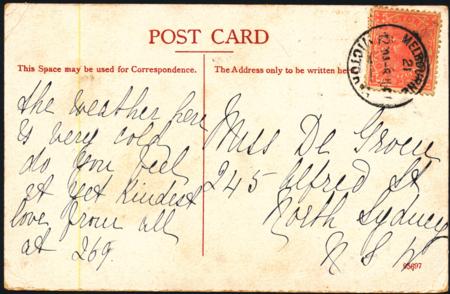 POST CARD
This Space may be used for Correspondence.
the weather here
is very cold
do you feel
at yet kindest
love from all
at 269.
The Address only to be written here
Miss De Groen
245 Alfred St
North Sydney
N S W
MELBOURNE
VICTORIA